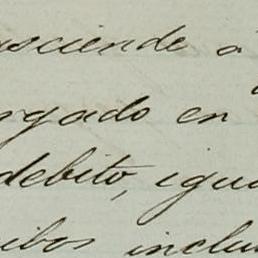 asciende á
rgado en
debito, igua
cibos inclu